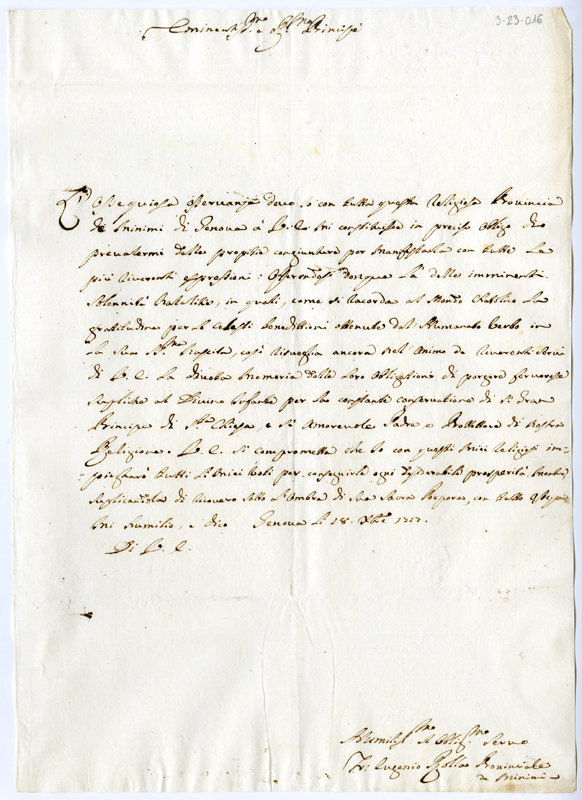 3-23-016
Eminent.mo e Principe
L'Ossequiosa osservanza devo io con tutta questa Religiosa Provincia
de Minimi di Genova à V. E. mi constituisce in preciso obligo di
prevalermi delle propitie congiunture per manifestarla con tutte le
più riverenti espressioni: Offerendosi donque la delle imminenti
Solennità Natalitie, in quali, come si ricorda al Mondo Cattolico la
gratitudine per le Celesti benedittioni ottenute dal Humanato Verbo in
la sua Nascita, così risveglia ancora nell'Animo de riverenti servi
di V. E. la divota memoria delle loro obligationi di porgere fervorose
suppliche al Divino Infante per la constante conservatione di sì gran
Principe di Sta Chiesa, e sì amorevole Padre, e Protettore di nostra
Religione. V. E. si comprometta che io con questi miei Religiosi im-
piegharò tutti li miei Voti per conseguirle ogni desiderabile prosperità, mentre
supplicandola di nuovo sotto l'ombra di sua Sacra Porpora, con tutto
mi humilio, e dico Genova li 18. Xbre 1717.
Di V. E.
Humiliss.mo et Oblig.mo Servo
Fr: Eugenio Provinciale
de Minimi